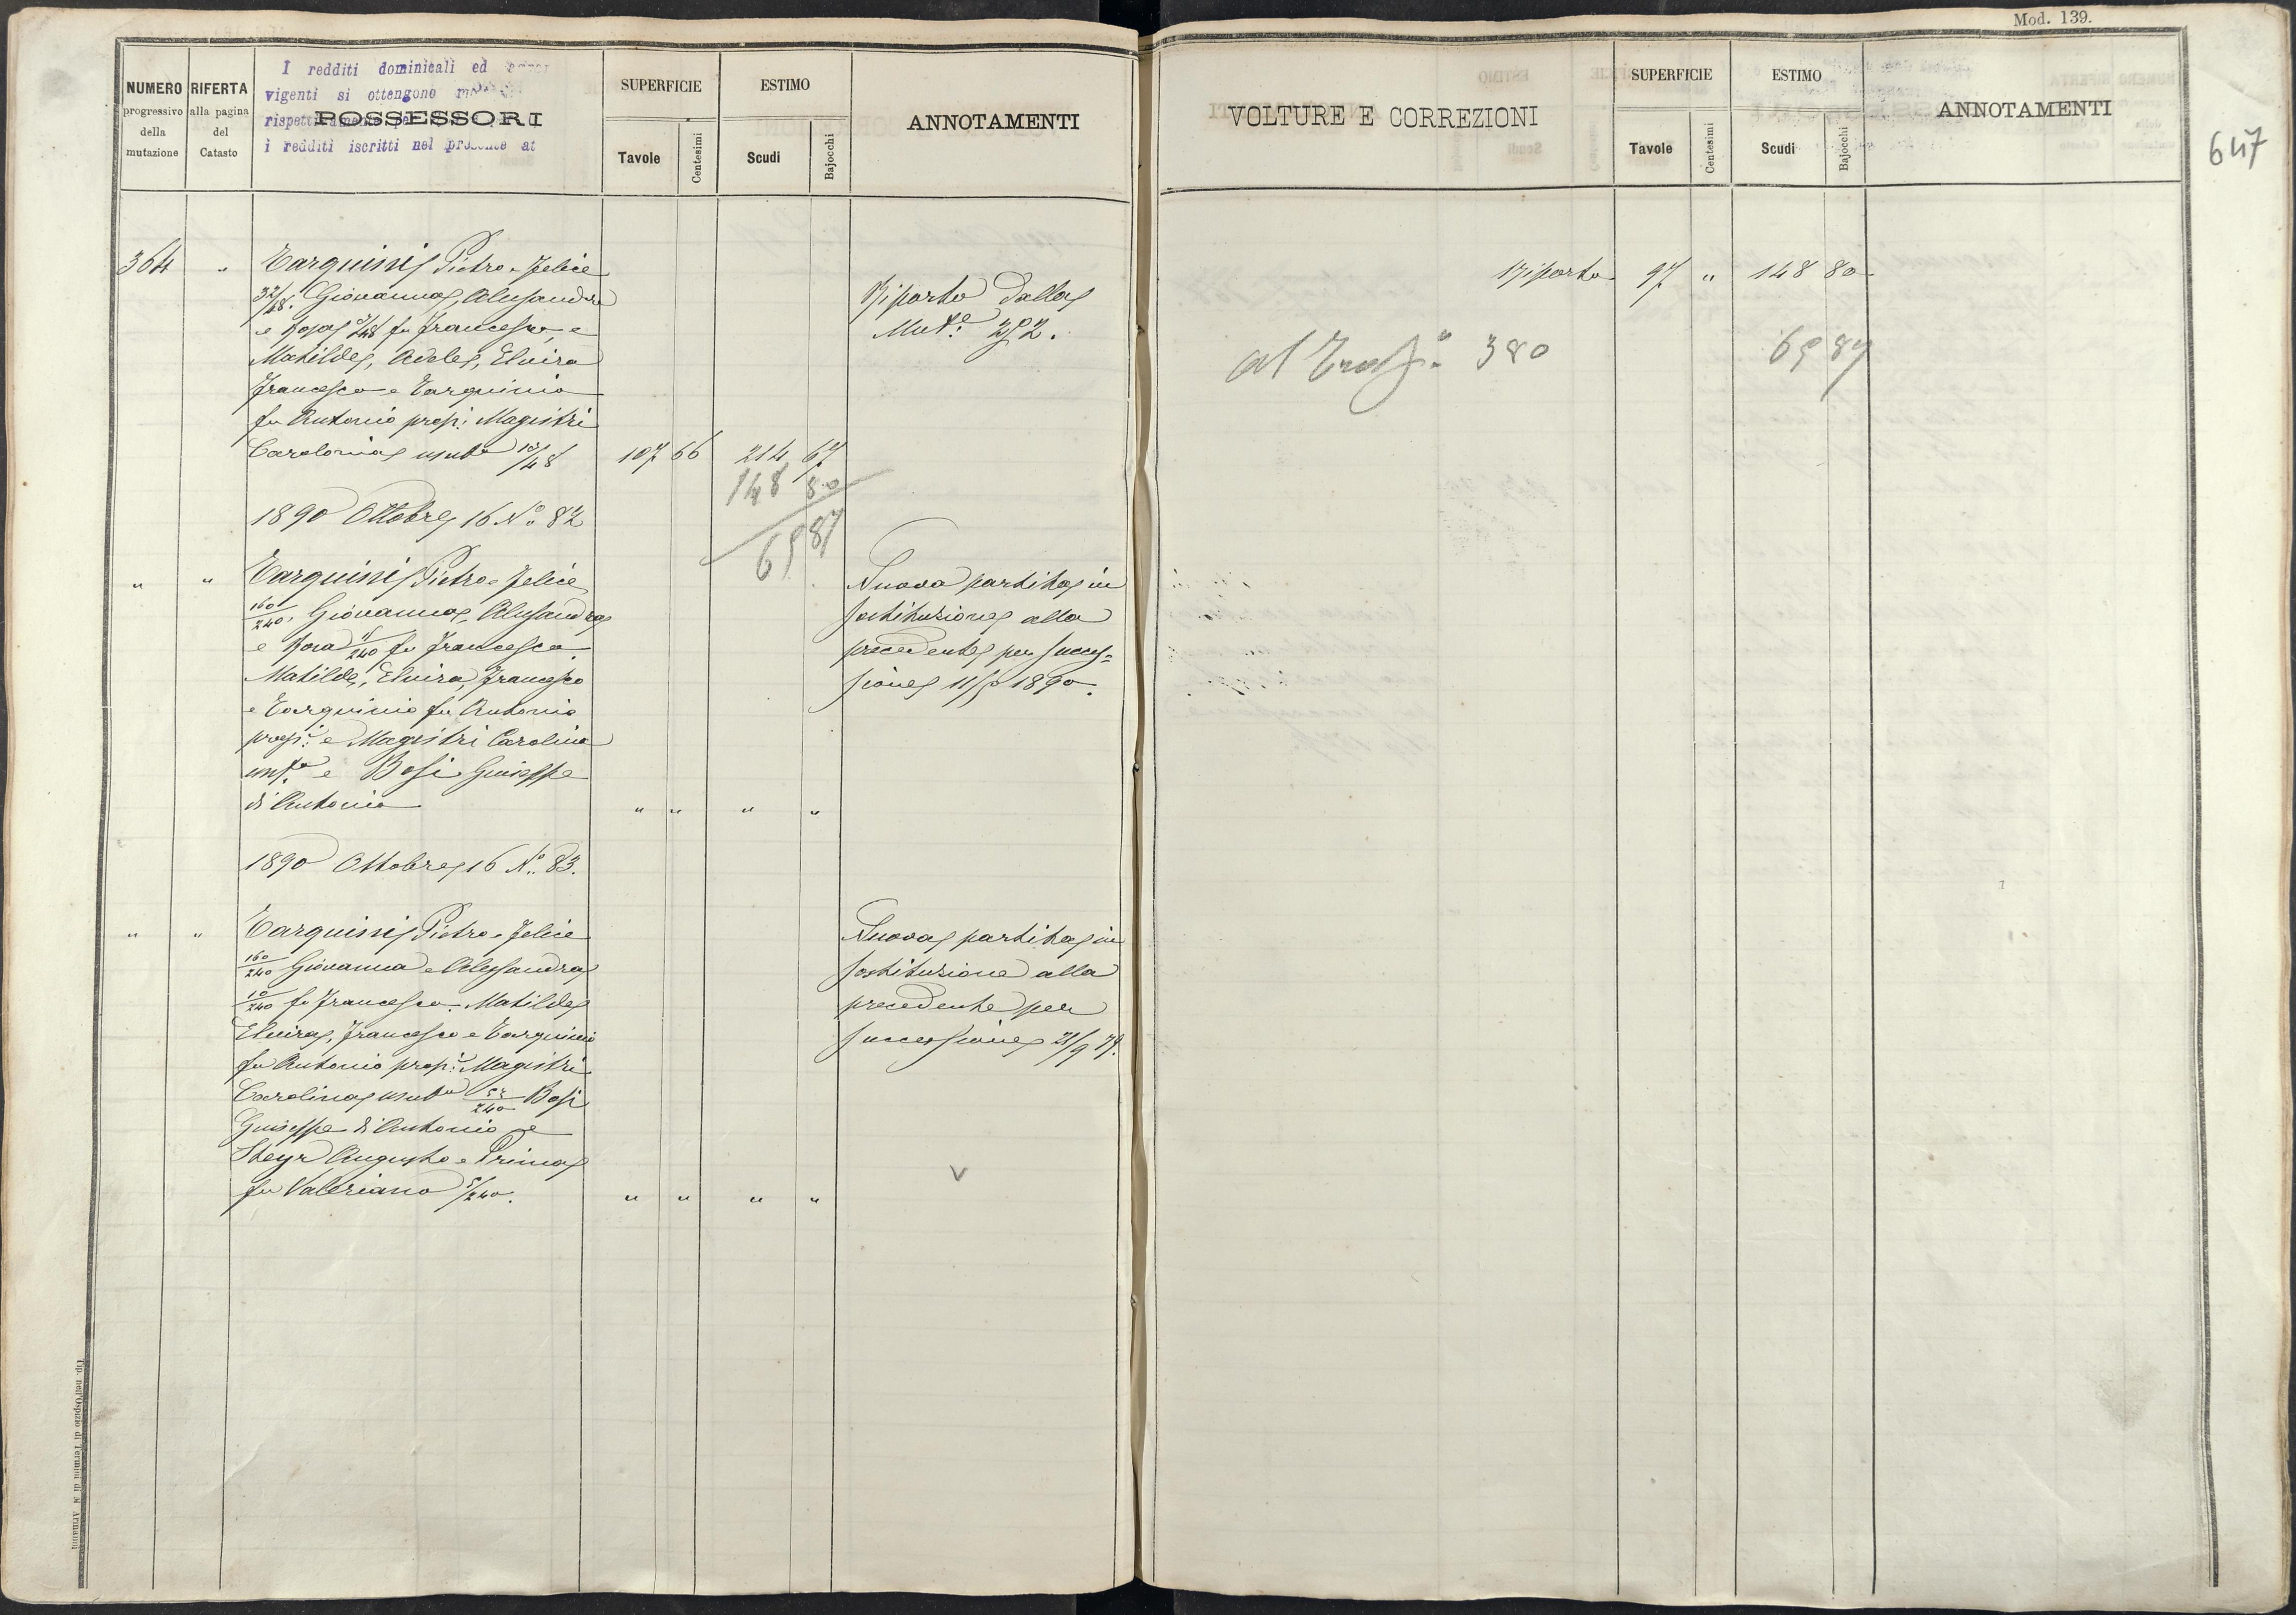 Mod. 139.
647
NUMERO progressivo della mutazione
RIFERTA alla pagina del Catasto
I redditi dominicali ed
vigenti si ottengono
i redditi iscritti nel presente at
POSSESSORI
SUPERFICIE
Tavole
Centesimi
ESTIMO
Scudi
Bajocchi
ANNOTAMENTI
364 "
Tarquinij Pietro e Felice
32/48. Giovanna, Alessandra
e Rosa /48 fu Francesco, e
Matilde, Adele, Elvira
Francesco e Tarquinio
fu Antonio prop.i Magistri
Carolonia usuf.a 12/48 107 66 214 67
148 80
65 87
Riporto dalla
Mut.e 252.
1890 Ottobre 16 N.o 82
" "
Tarquinij Pietro e Felice
160/240, Giovanna, Alessandra
e Rosa /240 fu Francesco.
Matilde, Elvira, Francesco
e Tarquinio fu Antonio
prop.i e Magistri Carolina
usuf.a e Bosi Giuseppe
di Antonio " " " "
Nuova partita in
sostituzione alla
precedente per succes=
sione 11/5 1890.
1890 Ottobre 16 N.o 83.
" "
Tarquinij Pietro e Felice
160/240 Giovanna e Alessandra
10/240 fu Francesco. Matilde
Elvira, Francesco e Tarquinio
fu Antonio prop.i Magistri
Carolina usuf.a /240 Bosi
Giuseppe di Antonio e
Steyr Augusto e Prima
fu Valeriano 5/240. " " " "
Nuova partita in
sostituzione alla
precedente per
successione 21/9 79.
V
Tip. nell'Ospizio di Termini di N. Armanni
VOLTURE E CORREZIONI
SUPERFICIE
Tavole
Centesimi
ESTIMO
Scudi
Bajocchi
ANNOTAMENTI
Riporto 97 " 148 80
al Trasp.o 380 65 87